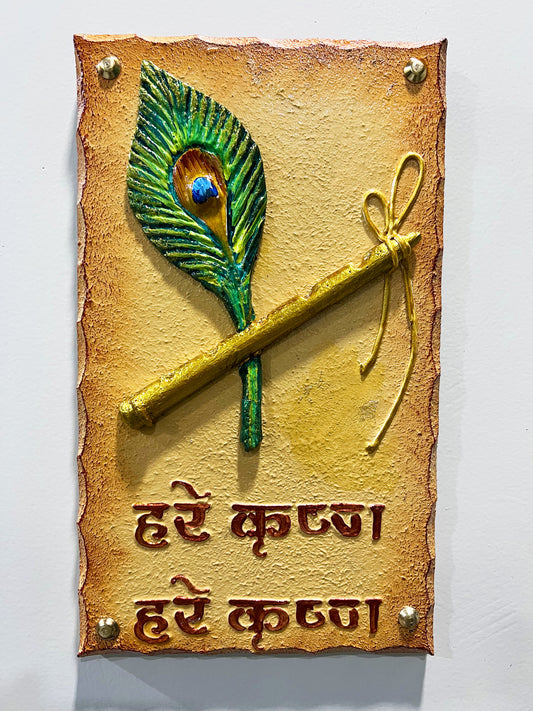 हरे कृष्ण
हरे कृष्ण